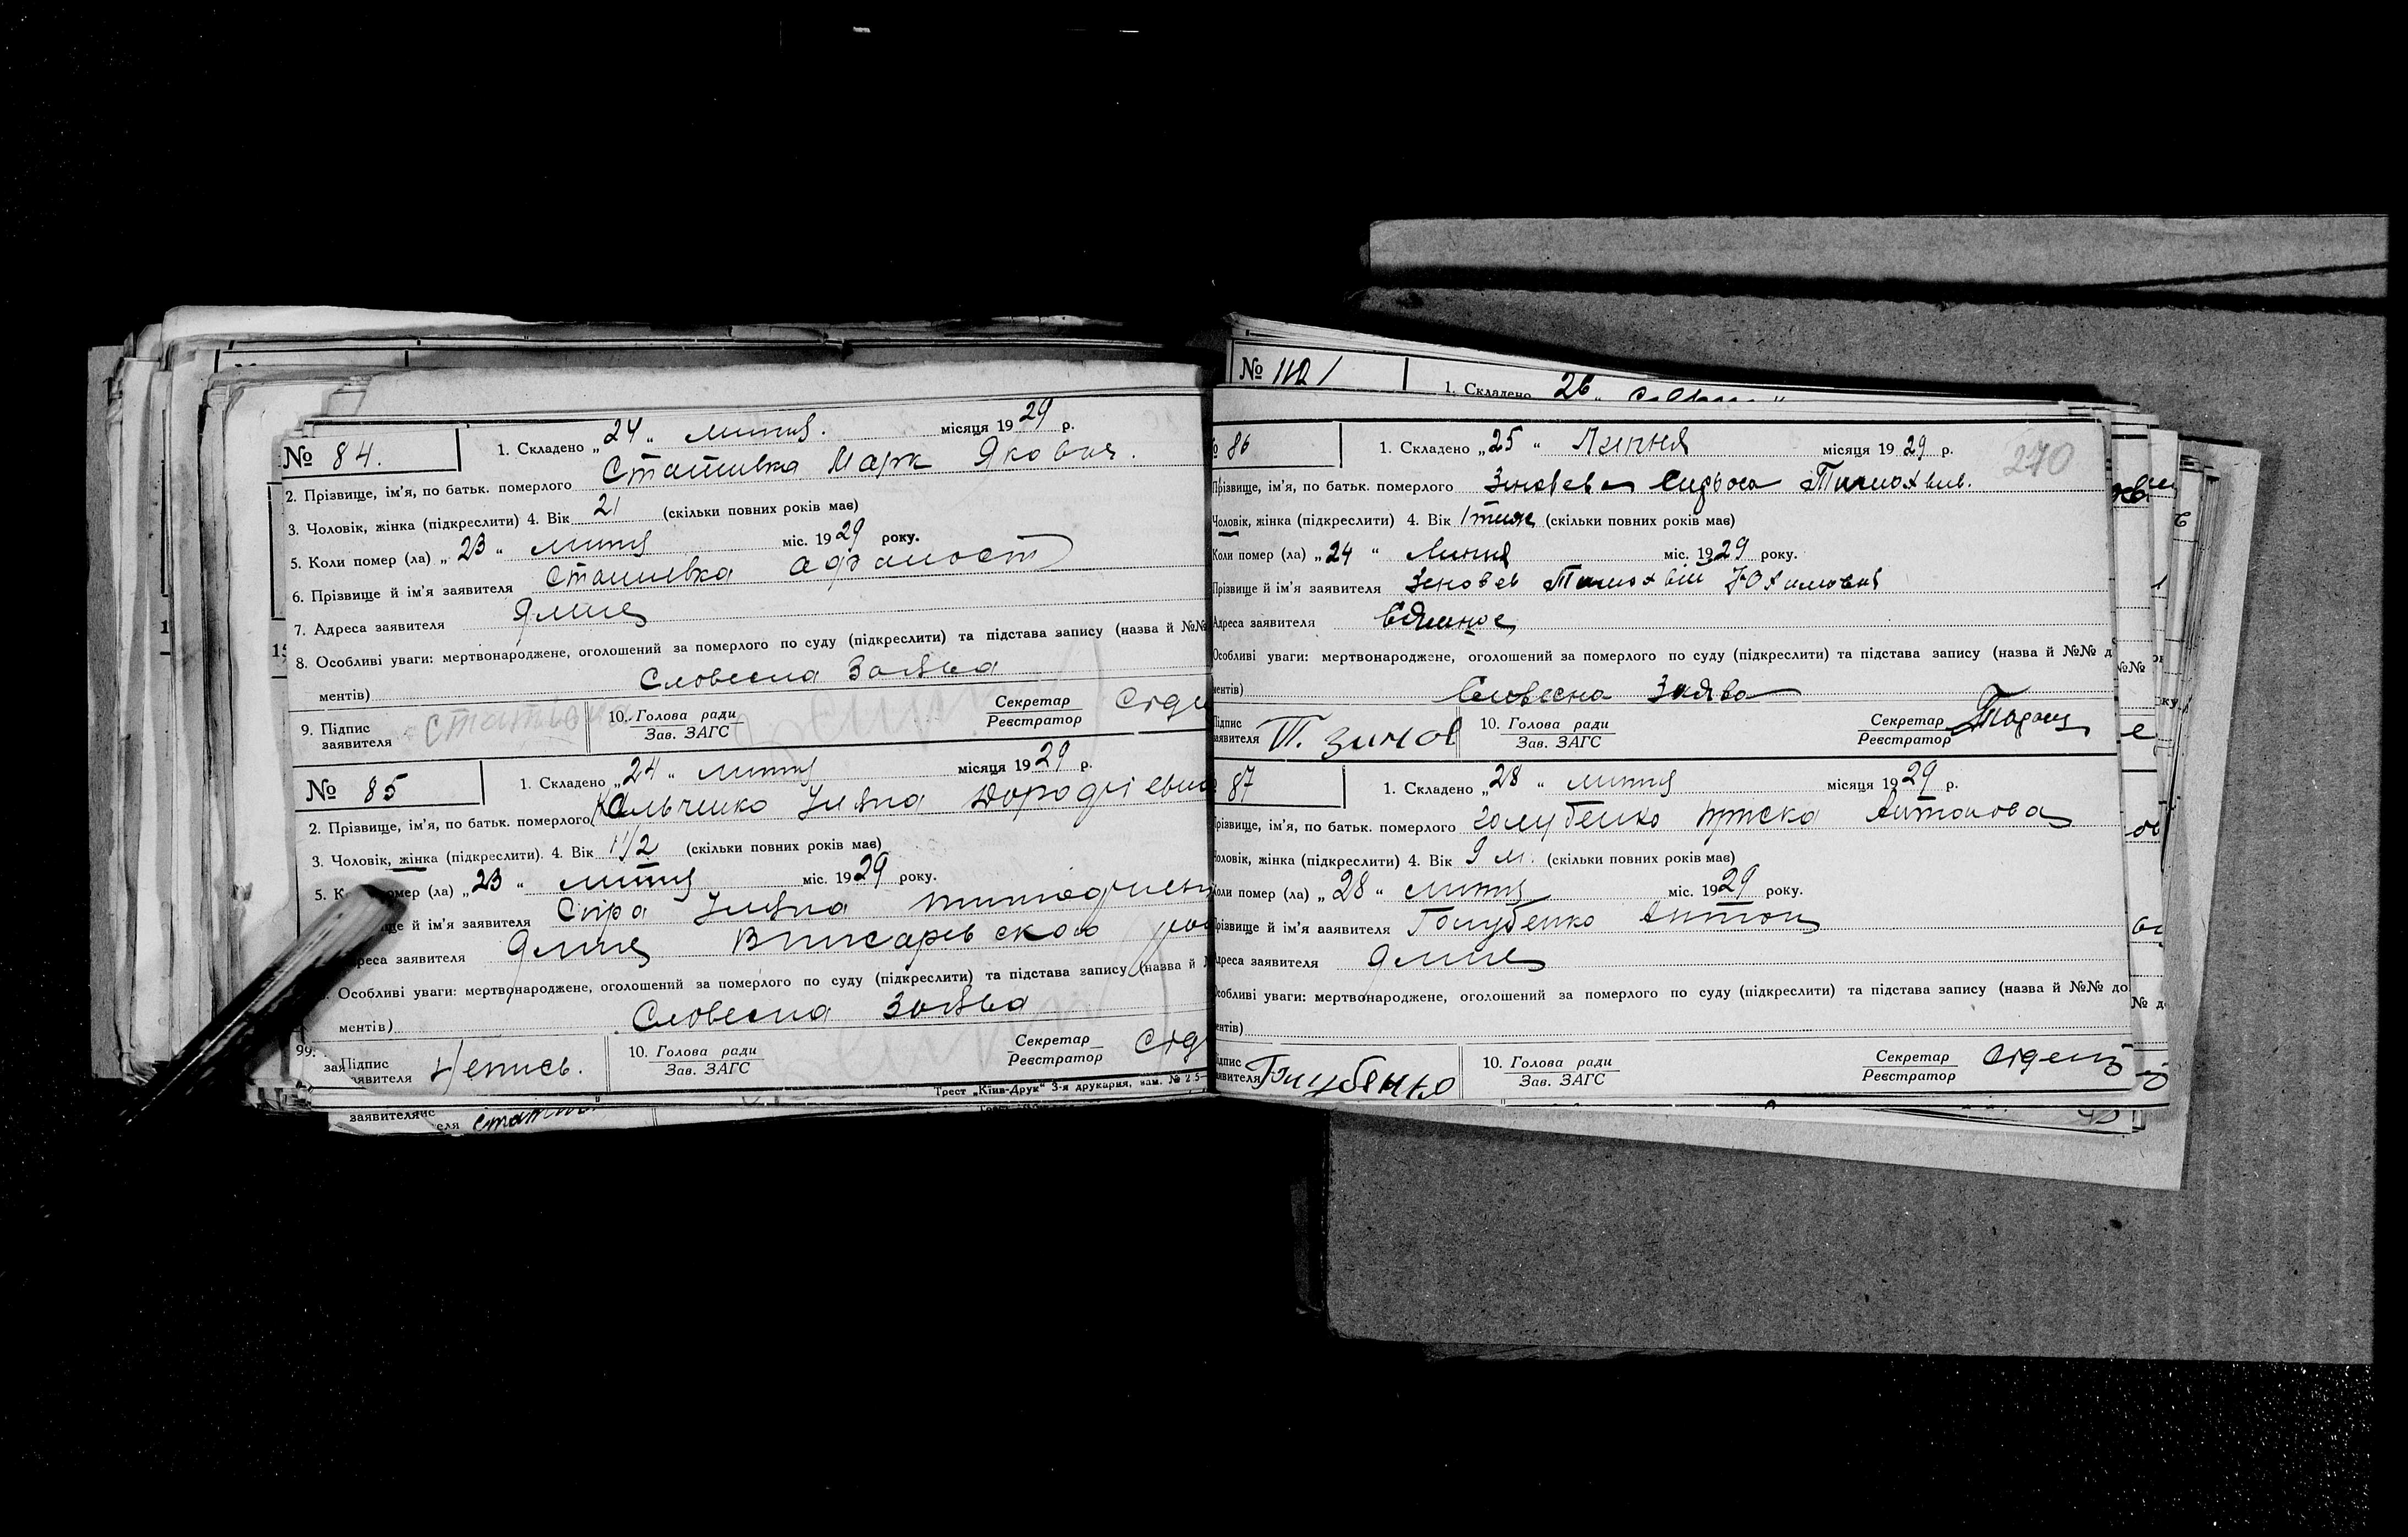 № 84. 1. Складено „24“ липня. місяця 1929 р.
2. Прізвище, ім'я, по батьк. померлого Сташивка Марк Якович.
3. Чоловік, жінка (підкреслити) 4. Вік 21 (скільки повних років має)
5. Коли помер (ла) „23“ липня міс. 1929 року.
6. Прізвище й ім'я заявителя Сташивка
7. Адреса заявителя
8. Особливі уваги: мертвонароджене, оголошений за померлого по суду (підкреслити) та підстава запису (назва й №№
ментів) Словесна Заява
9. Підпис заявителя 10. Голова ради Зав. ЗАГС Секретар Реєстратор
№ 85 1. Складено „24“ липня місяця 1929 р.
2. Прізвище, ім'я, по батьк. померлого Кальченко
3. Чоловік, жінка (підкреслити). 4. Вік 1 1/2 (скільки повних років має)
5. К омер (ла) „23“ липня міс. 1929 року.
ще й ім'я заявителя Сіра
реса заявителя
Особливі уваги: мертвонароджене, оголошений за померлого по суду (підкреслити) та підстава запису (назва й
ментів) Словесна Заява
Підпис заявителя Непись. 10. Голова ради Зав. ЗАГС Секретар Реєстратор
Трест „Київ-Друк“ 3-я друкарня, зам. № 25
заявителя
№ 1. Складено 26
86 1. Складено „25“ Липня місяця 1929 р. 270
Прізвище, ім'я, по батьк. померлого Зновева Тимохвив.
Чоловік, жінка (підкреслити) 4. Вік 1 тиж (скільки повних років має)
Коли помер (ла) „24“ Липня міс. 1929 року.
Прізвище й ім'я заявителя Зеновев Тимохвій Юхимович
Адреса заявителя
Особливі уваги: мертвонароджене, оголошений за померлого по суду (підкреслити) та підстава запису (назва й №№ д
ментів) Словесна Заява
Підпис заявителя Т. Зинов 10. Голова ради Зав. ЗАГС Секретар Реєстратор
87 1. Складено „28“ липня місяця 1929 р.
Прізвище, ім'я, по батьк. померлого Голубенко Пріска Антонова
Чоловік, жінка (підкреслити) 4. Вік 9 м. (скільки повних років має)
Коли помер (ла) „28“ липня міс. 1929 року.
Прізвище й ім'я заявителя Голубенко Антон
Адреса заявителя
Особливі уваги: мертвонароджене, оголошений за померлого по суду (підкреслити) та підстава запису (назва й №№ до
ентів)
Підпис заявителя Голубенко 10. Голова ради Зав. ЗАГС Секретар Реєстратор